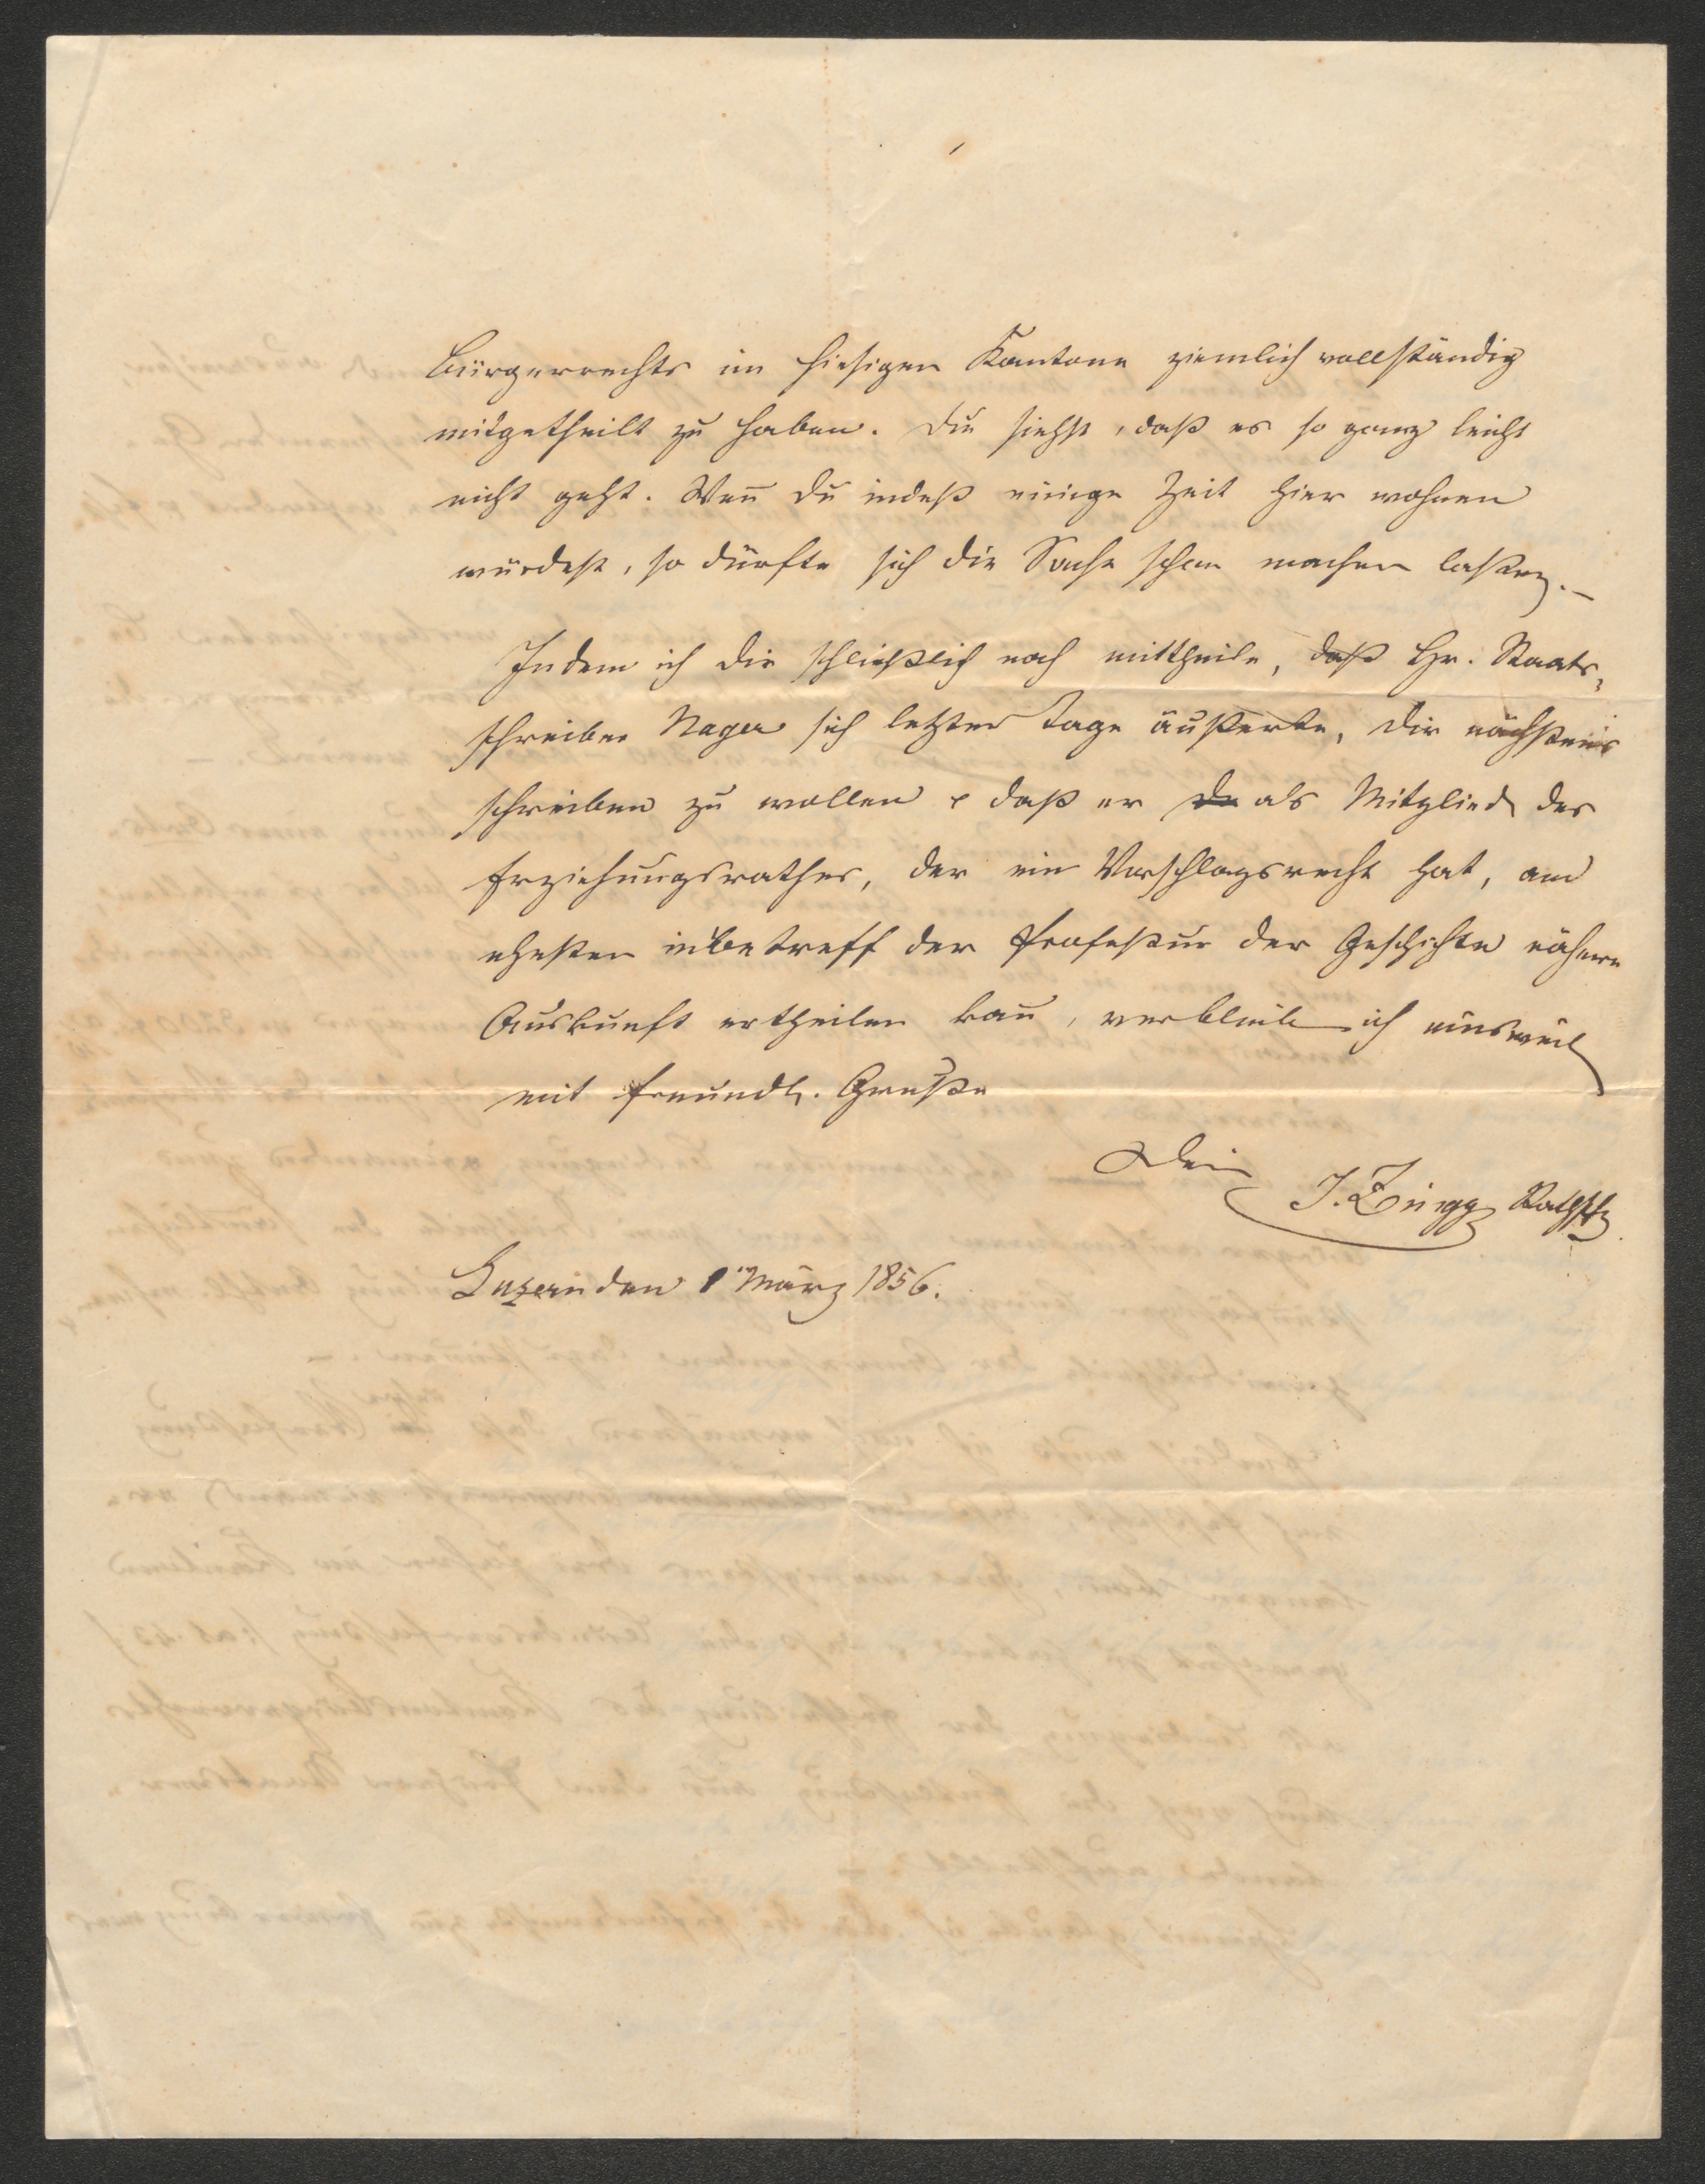 Bürgerrechts im hiesigen Kantone ziemlich vollständig
mitgetheilt zu haben. Du siehst, daß es so ganz leicht
nicht geht. Weñ du indeß einige Zeit hier wohnen
würdest, so dürfte sich die Sache schon machen laßen.–
Indem ich dir schließlich noch mittheile, daß Hr. Staats-
schreiber Nager sich letzter Tage äußerte, dir nächstens
schreiben zu wollen & daß er als Mitglied des
Erziehungsrathes, der ein Vorschlagsrecht hat, am
ehesten inbetreff der Profeßur der Geschichte nähere
Auskunft ertheilen kañ, verbleibe ich einsweil
mit freundl. Gruße
Dein
J. Zingg
Luzern den 1 März 1856.